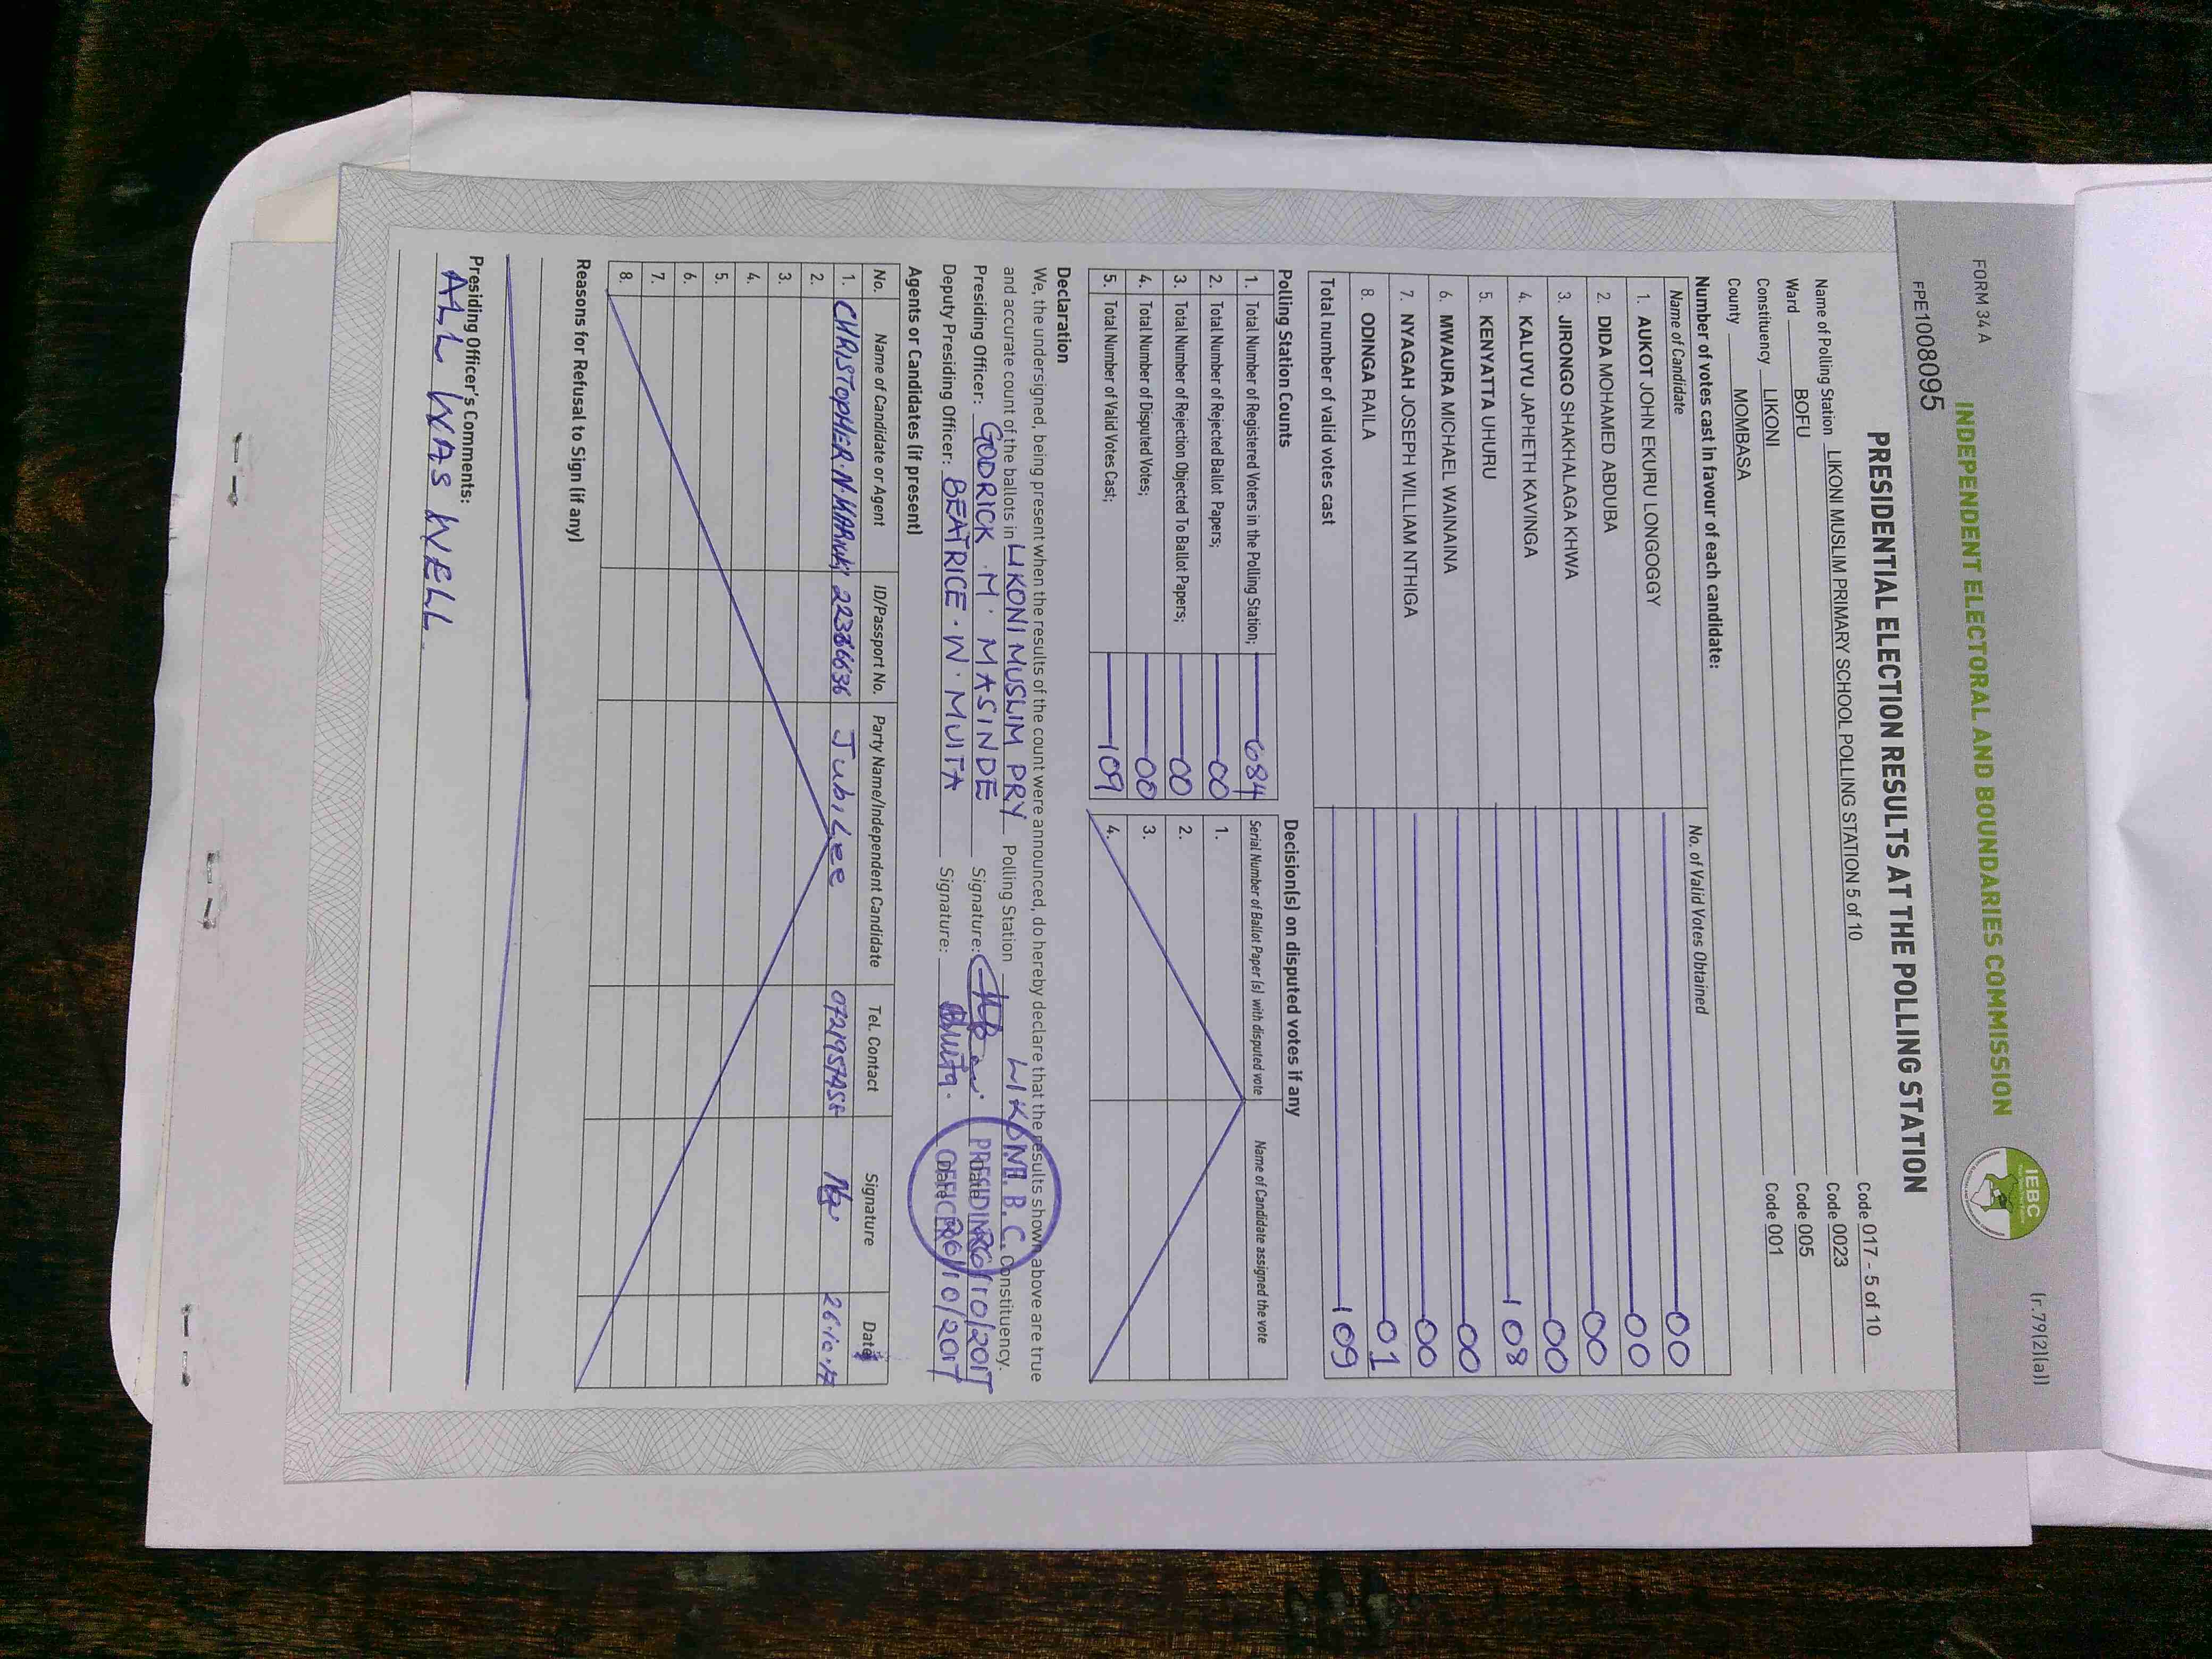 FORM 34 A
(r.79(2)(a))
INDEPENDENT ELECTORAL AND BOUNDARIES COMMISSION
IEBC
FPE1008095
PRESIDENTIAL ELECTION RESULTS AT THE POLLING STATION
Name of Polling Station LIKONI MUSLIM PRIMARY SCHOOL POLLING STATION 5 of 10 Code 017 - 5 of 10
Ward BOFU Code 0023
Constituency LIKONI Code 005
County MOMBASA Code 001
Number of votes cast in favour of each candidate:
Name of Candidate No. of Valid Votes Obtained
1. AUKOT JOHN EKURU LONGOGGY 00
2. DIDA MOHAMED ABDUBA 00
3. JIRONGO SHAKHALAGA KHWA 00
4. KALUYU JAPHETH KAVINGA 00
5. KENYATTA UHURU 108
6. MWAURA MICHAEL WAINAINA 00
7. NYAGAH JOSEPH WILLIAM NTHIGA 00
8. ODINGA RAILA 01
Total number of valid votes cast 109
Polling Station Counts
1. Total Number of Registered Voters in the Polling Station; 684
2. Total Number of Rejected Ballot Papers; 00
3. Total Number of Rejection Objected To Ballot Papers; 00
4. Total Number of Disputed Votes; 00
5. Total Number of Valid Votes Cast; 109
Decision(s) on disputed votes if any
Serial Number of Ballot Paper (s) with disputed vote Name of Candidate assigned the vote
1.
2.
3.
4.
Declaration
We, the undersigned, being present when the results of the count were announced, do hereby declare that the results shown above are true
and accurate count of the ballots in LIKONI MUSLIM PRY Polling Station LIKONI Constituency.
Presiding Officer: GODRICK M. MASINDE Signature: Date 26/10/2017
Deputy Presiding Officer: BEATRICE. W. MUITA Signature: Date 26/10/2017
PRESIDING
OFFICER
Agents or Candidates (if present)
No. Name of Candidate or Agent ID/Passport No. Party Name/Independent Candidate Tel. Contact Signature Date
1. CHRISTOPHER. N. Jubilee 26.10.17
2.
3.
4.
5.
6.
7.
8.
Reasons for Refusal to Sign (if any)
Presiding Officer's Comments:
ALL WAS WELL